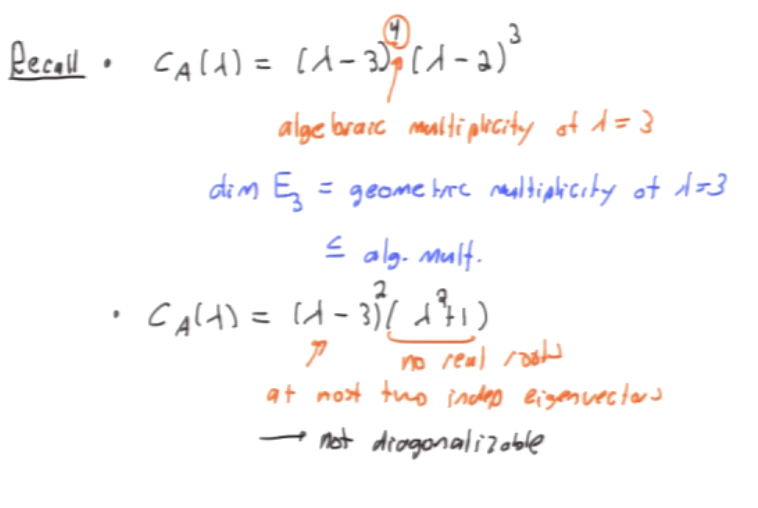 Recall • C_A(λ) = (λ-3)^4 (λ-2)^3
algebraic multiplicity of λ = 3
dim E_3 = geometric multiplicity of λ=3
≤ alg. mult.
• C_A(λ) = (λ-3)^2 (λ^2+1)
no real roots
at most two indep eigenvectors
→ not diagonalizable